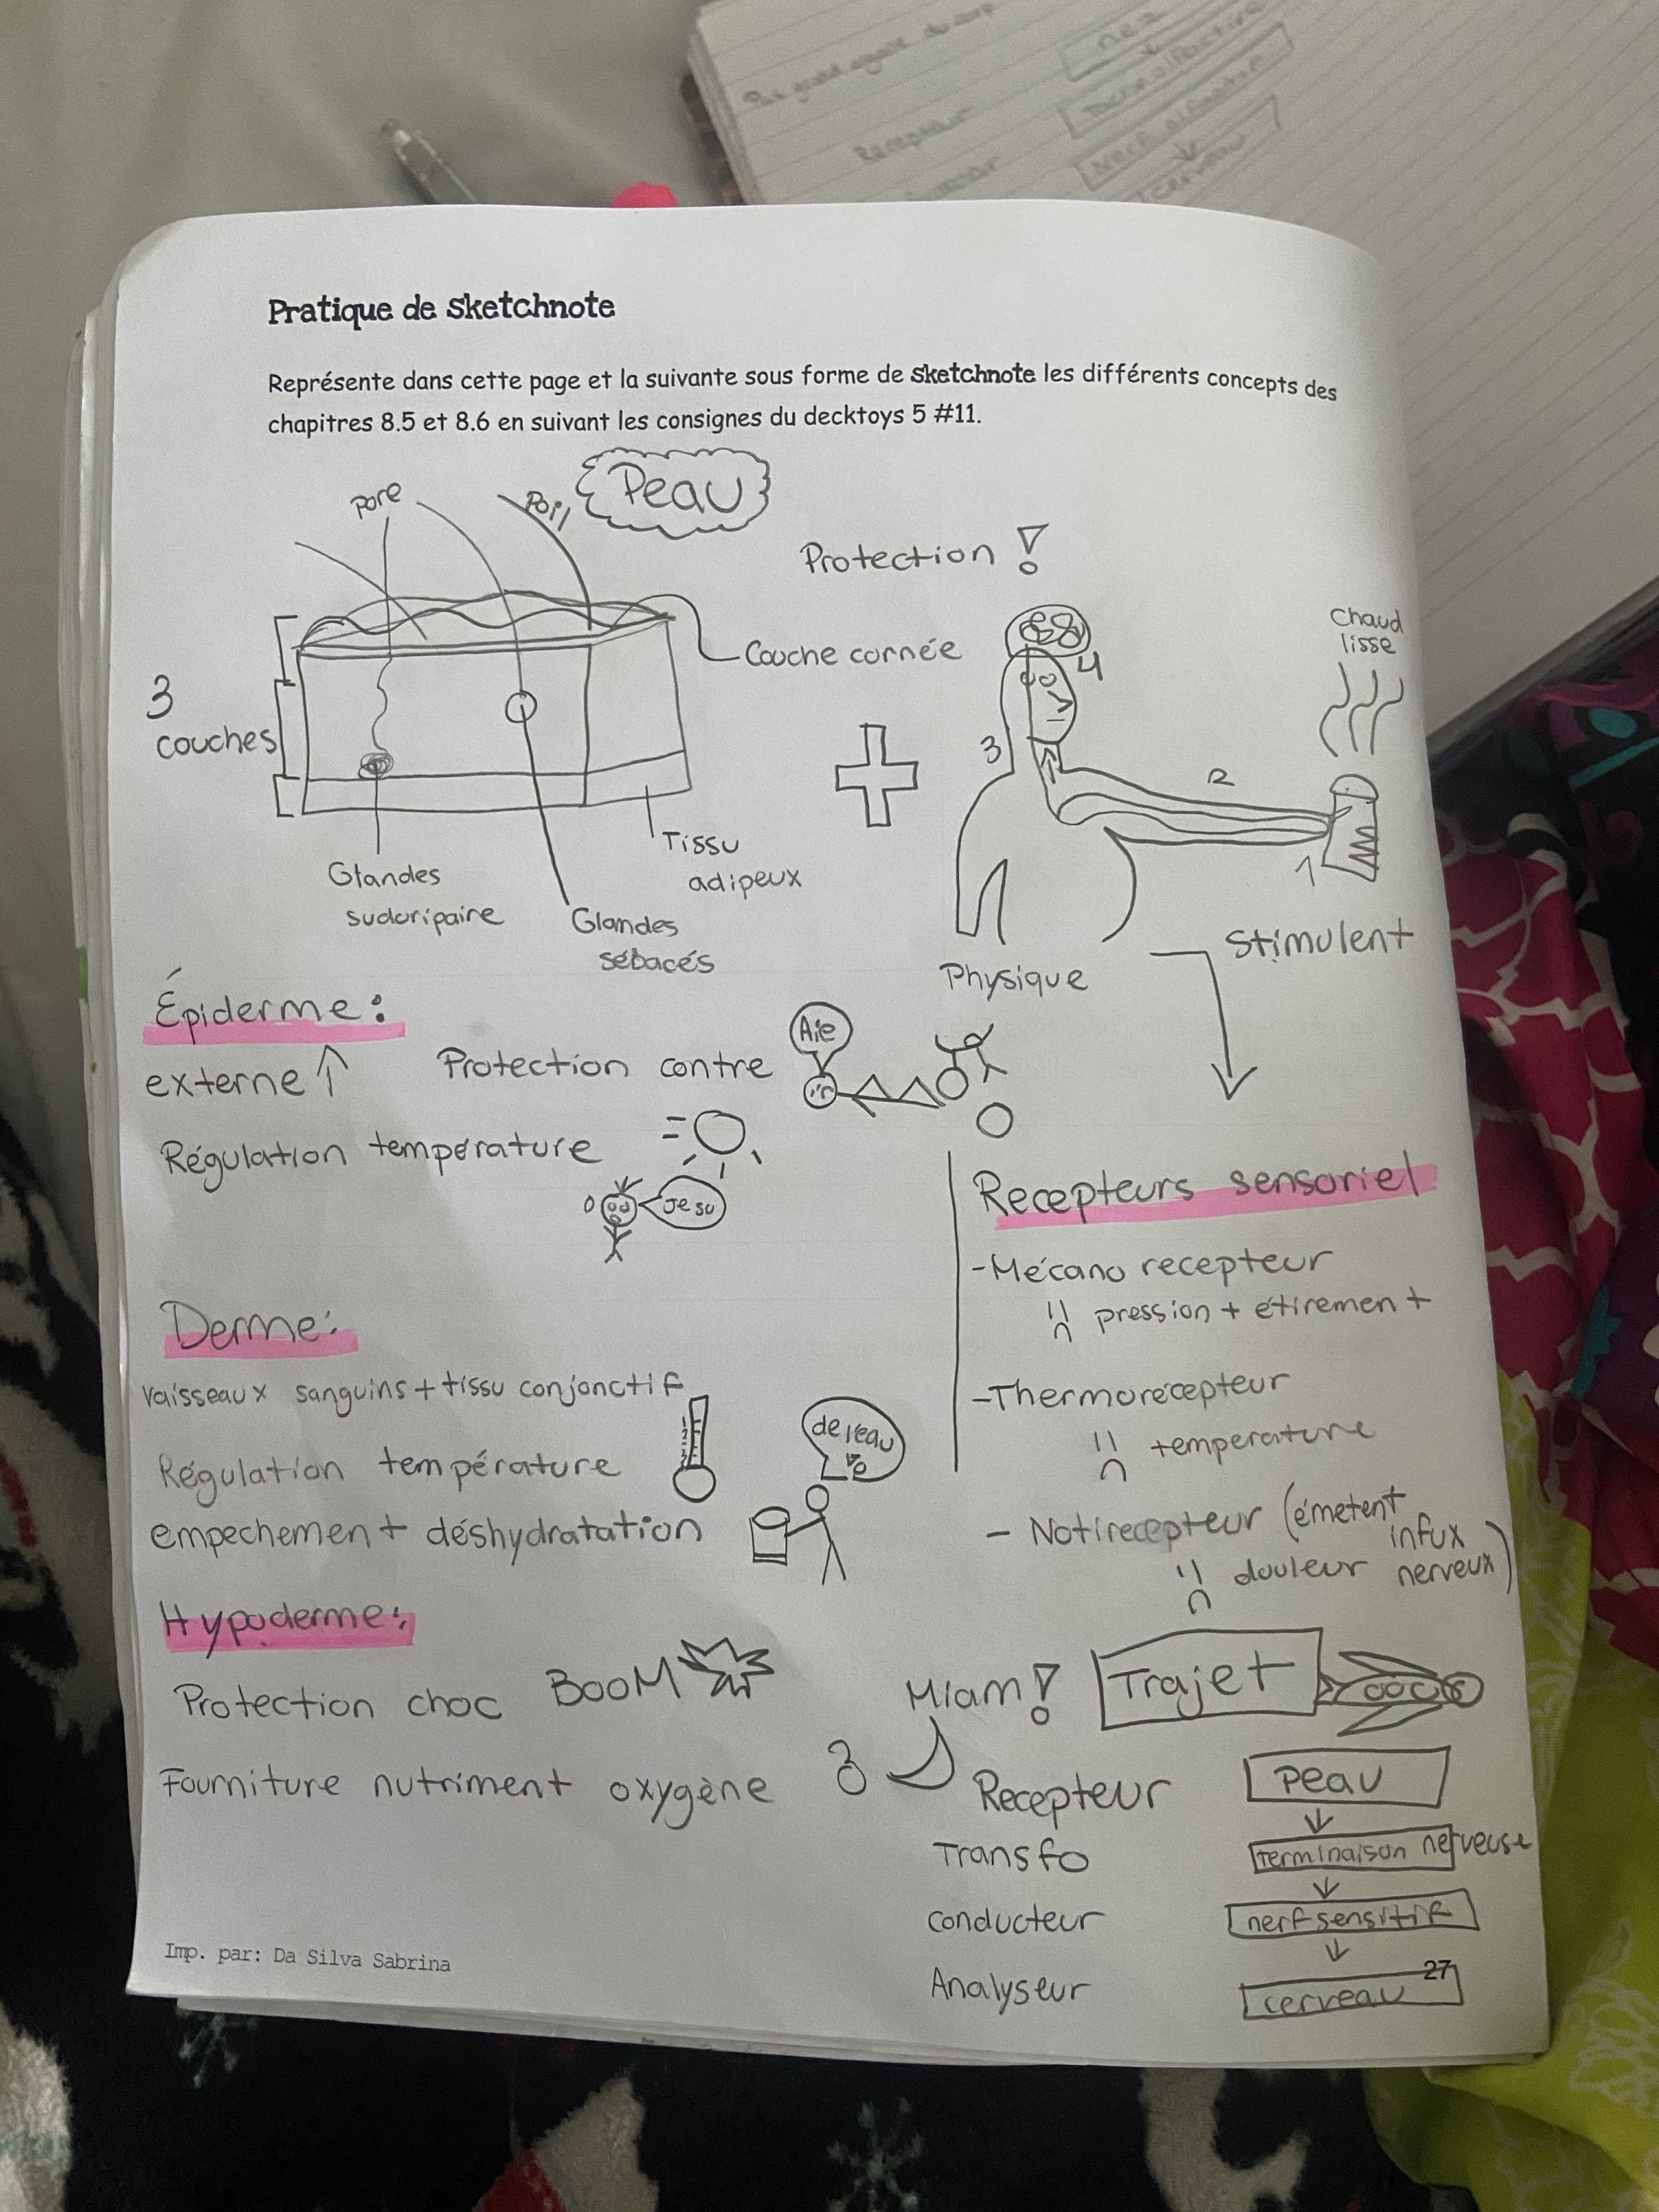 Pratique de sketchnote
Représente dans cette page et la suivante sous forme de sketchnote les différents concepts des
chapitres 8.5 et 8.6 en suivant les consignes du decktoys 5 #11.
Peau
Pore
Poil
Protection !
Couche cornée
3
couches
Glandes
sudoripaire
Glandes
sébacés
Tissu
adipeux
Chaud
lisse
4
3
2
1
Physique
Stimulent
Épiderme :
externe ↑
Protection contre
Aïe
Régulation température
Je su
Derme :
vaisseaux sanguins + tissu conjonctif
Régulation température
de l'eau
empechement déshydratation
Hypoderme :
Protection choc BOOM
Fourniture nutriment oxygène
Recepteurs sensoriel
- Mécano recepteur
pression + étirement
- Thermorécepteur
temperature
- Notirecepteur (émetent
infux
douleur nerveux)
Miam !
Trajet
Recepteur
Peau
Transfo
terminaison nerveuse
conducteur
nerf sensitif
Analyseur
cerveau
Imp. par: Da Silva Sabrina
27
nez
Recepteur
Nerf olfactif
cerveau